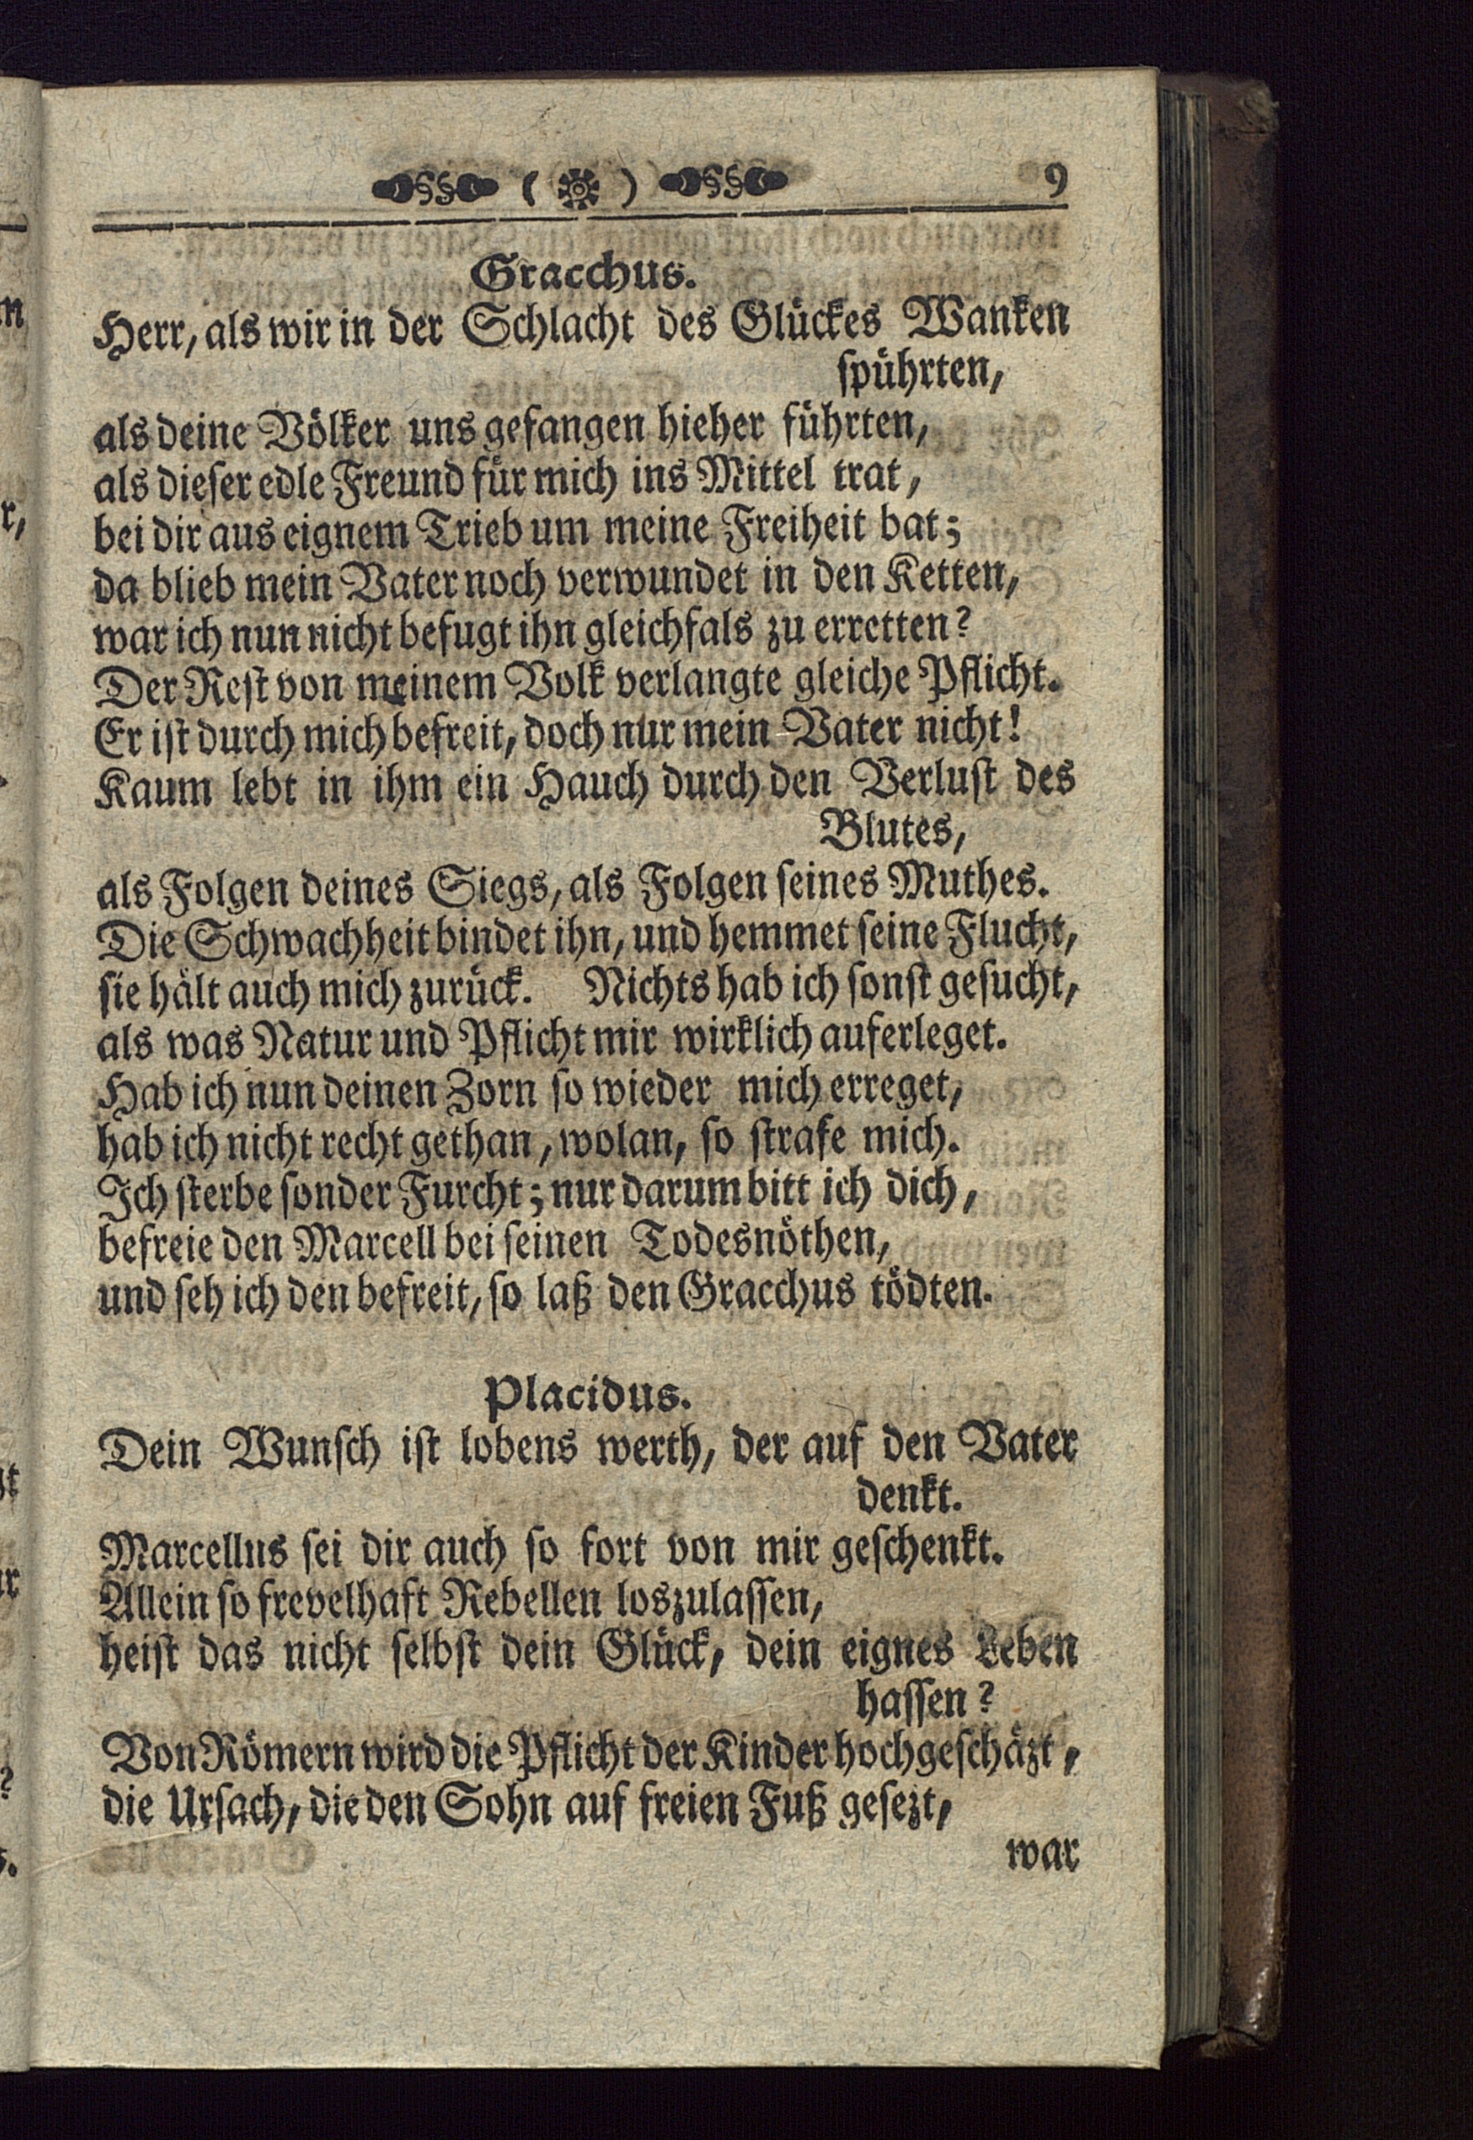 9
Gracchus.
Herr, als wir in der Schlacht des Glückes Wanken
spührten,
als deine Völker uns gefangen hieher führten,
als dieser edle Freund für mich ins Mittel trat,
bei dir aus eignem Trieb um meine Freiheit bat;
da blieb mein Vater noch verwundet in den Ketten,
war ich nun nicht befugt ihn gleichfals zu erretten?
Der Rest von meinem Volk verlangte gleiche Pflicht.
Er ist durch mich befreit, doch nur mein Vater nicht!
Kaum lebt in ihm ein Hauch durch den Verlust des
Blutes,
als Folgen deines Siegs, als Folgen seines Muthes.
Die Schwachheit bindet ihn, und hemmet seine Flucht,
sie hält auch mich zurück. Nichts hab ich sonst gesucht,
als was Natur und Pflicht mir wirklich auferleget.
Hab ich nun deinen Zorn so wieder mich erreget,
hab ich nicht recht gethan, wolan, so strafe mich.
Ich sterbe sonder Furcht; nur darum bitt ich dich,
befreie den Marcell bei seinen Todesnöthen,
und seh ich den befreit, so laß den Gracchus tödten.
Placidus.
Dein Wunsch ist lobens werth, der auf den Vater
denkt.
Marcellus sei dir auch so fort von mir geschenkt.
Allein so frevelhaft Rebellen loszulassen,
heist das nicht selbst dein Glück, dein eignes Leben
hassen?
Von Römern wird die Pflicht der Kinder hochgeschäzt,
die Ursach, die den Sohn auf freien Fuß gesezt,
war